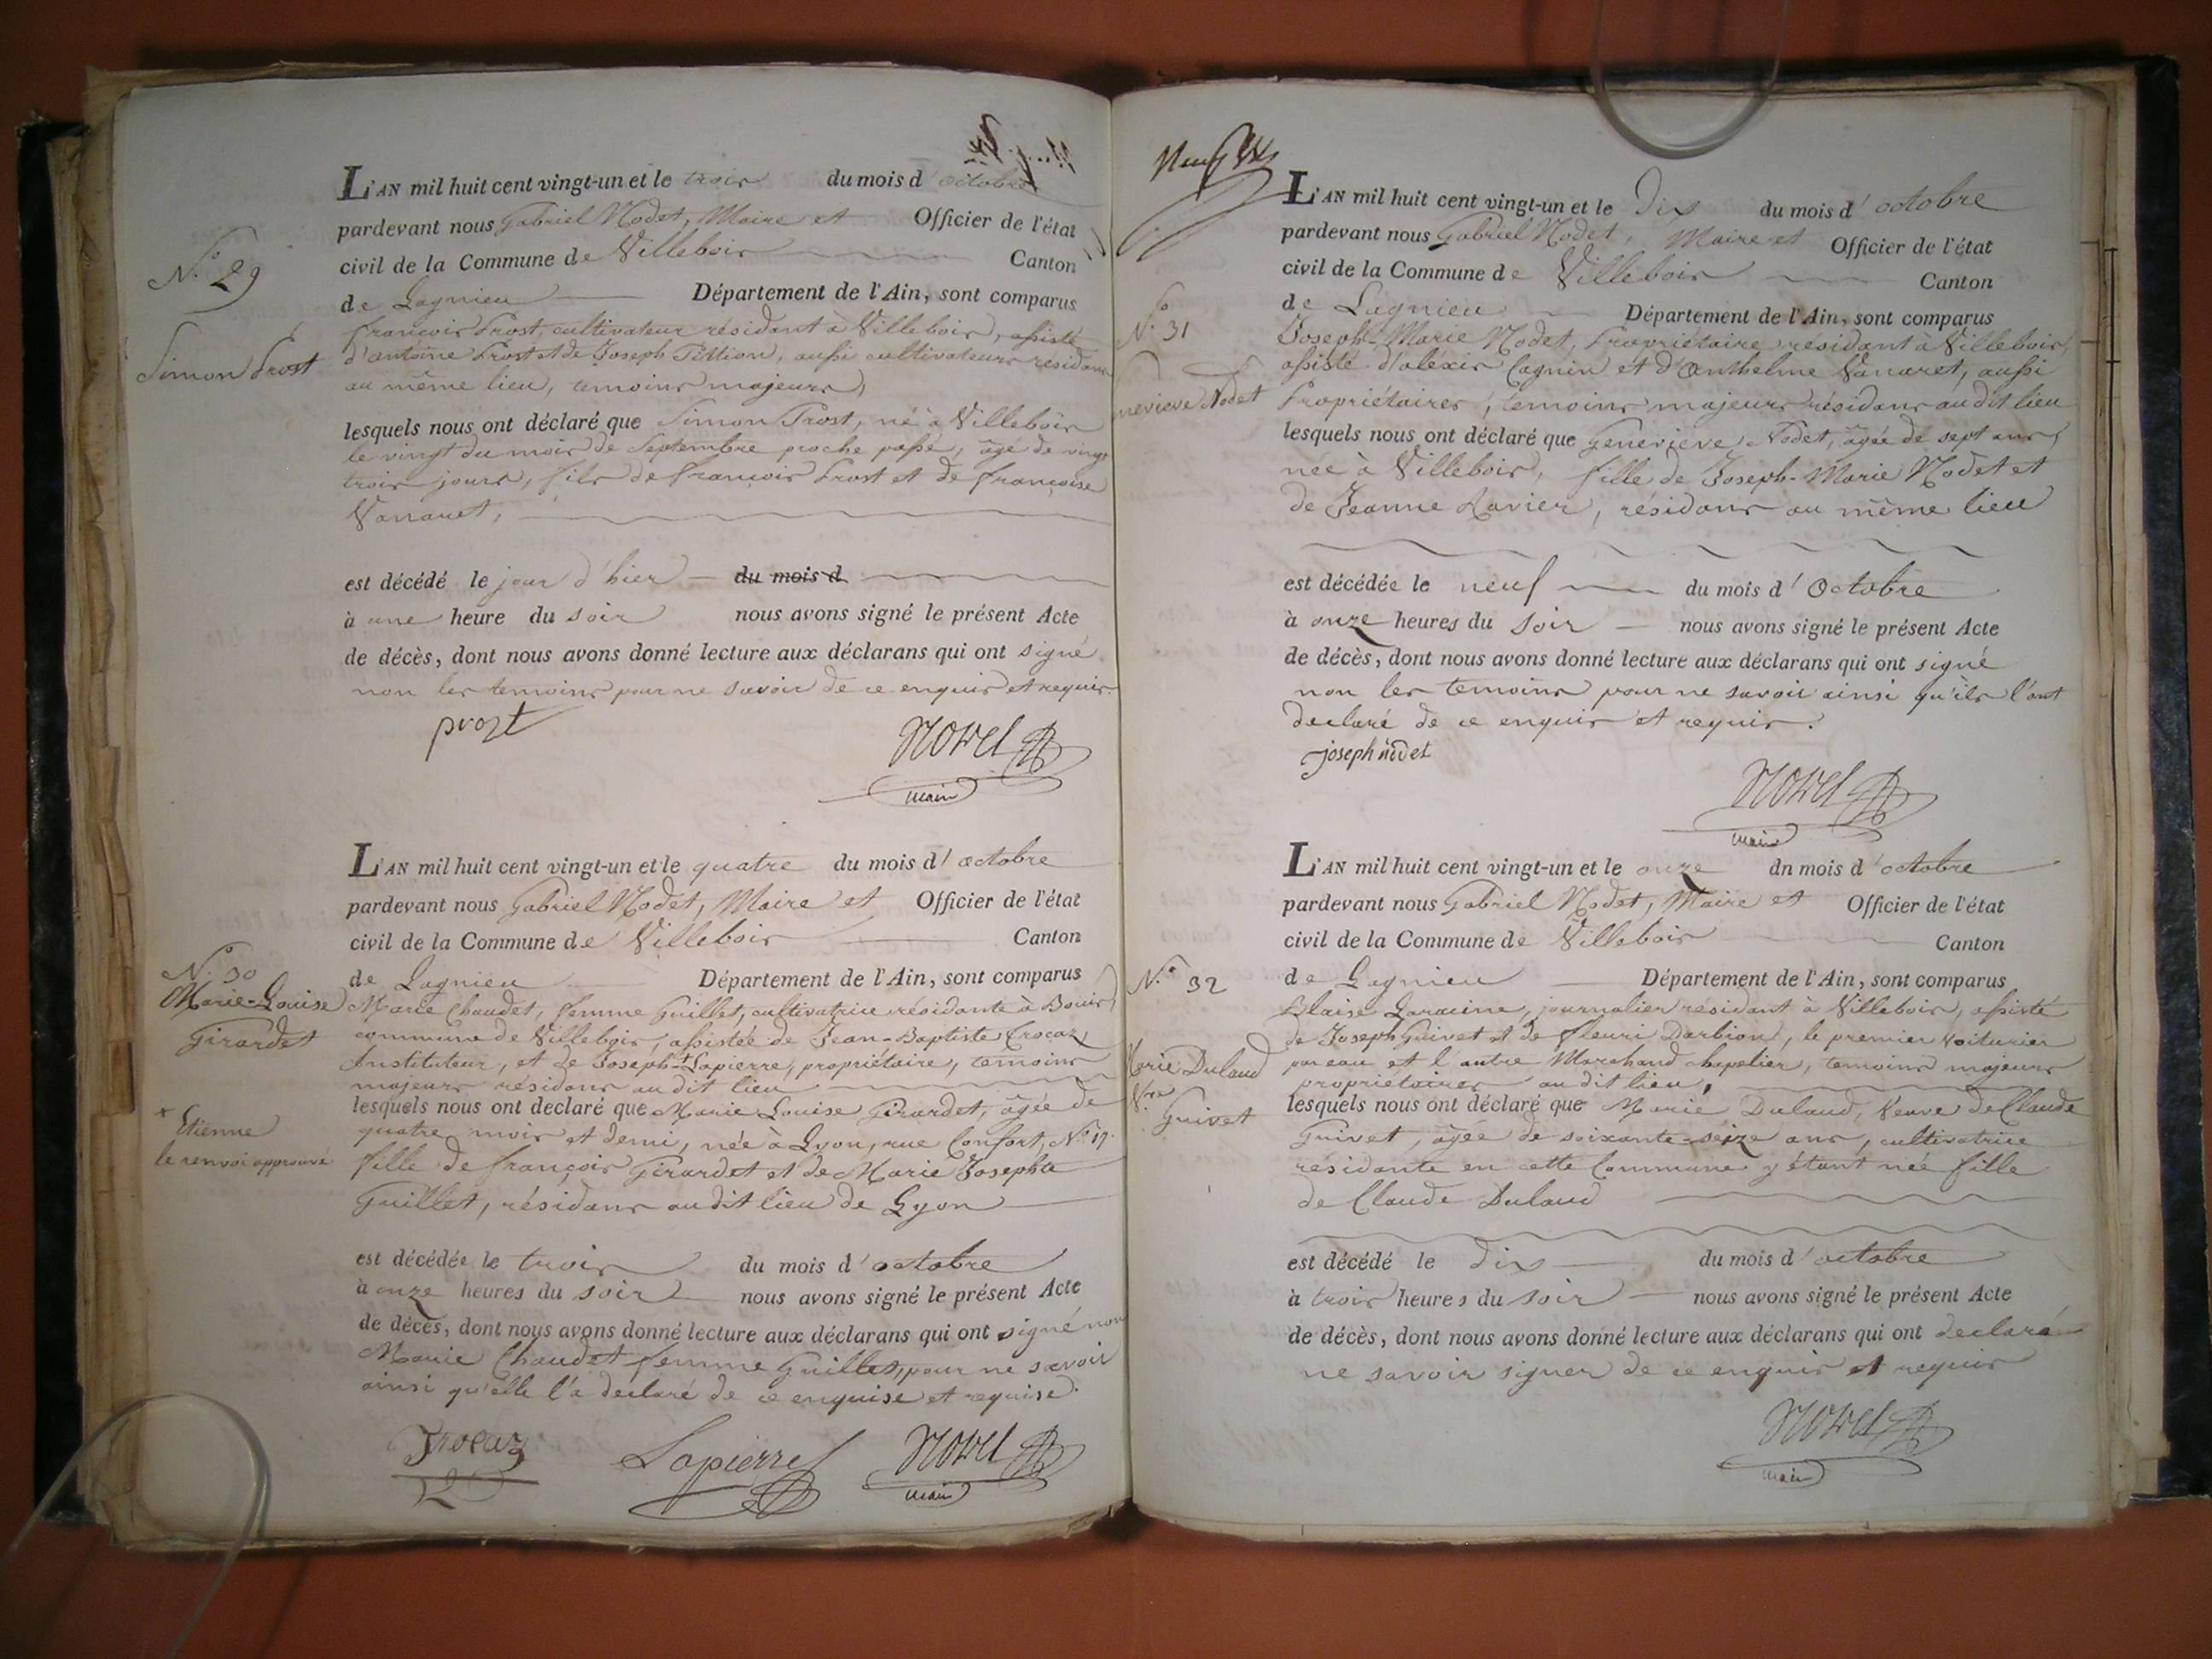 N.° 29
Simon Prost
L'AN mil huit cent vingt-un et le trois du mois d'octobre
pardevant nous Gabriel Nodet, Maire et Officier de l'état
civil de la Commune de Villebois Canton
de Lagnieu Département de l'Ain, sont comparus
françois Prost, cultivateur résidant à Villebois, assisté
d'antoine Prost et de Joseph Tillion, aussi cultivateurs résidans
au même lieu, témoins majeurs,
lesquels nous ont déclaré que Simon Prost, né à Villebois
le vingt du mois de Septembre proche passé, âgé de vingt
trois jours, fils de françois Prost et de françoise
Vanaret,
est décédé le jour d'hier du mois d
à une heure du soir nous avons signé le présent Acte
de décès, dont nous avons donné lecture aux déclarans qui ont signé
non les temoins pour ne savoir de ce enquis et requis.
prost
Nodet
maire
N.° 30
Marie-Louise
Girardet
+ Etienne
le renvoi approuvé
L'AN mil huit cent vingt-un et le quatre du mois d'octobre
pardevant nous Gabriel Nodet, Maire et Officier de l'état
civil de la Commune de Villebois Canton
de Lagnieu Département de l'Ain, sont comparus
Marie Chaudet, femme Guillet, cultivatrice résidante à Bouis,
commune de Villebois, assistée de Jean-Baptiste Trocaz
Instituteur, et de Joseph + Lapierre, propriétaire, temoins
majeurs résidans au dit lieu
lesquels nous ont declaré que Marie Louise Girardet, âgée de
quatre mois et demi, née à Lyon, rue Confort, N.° 19.
fille de françois Girardet et de Marie Josephte
Guillet, résidans au dit lieu de Lyon
est décédée le trois du mois d'octobre
à onze heures du soir nous avons signé le présent Acte
de décès, dont nous avons donné lecture aux déclarans qui ont signé non
Marie Chaudet femme Guillet, pour ne savoir
ainsi qu'elle l'a declaré de ce enquise et requise.
Trocaz
Lapierre
Nodet
maire
Neuf
N.° 31
nevieve Nodet
L'AN mil huit cent vingt-un et le Dix du mois d'octobre
pardevant nous Gabriel Nodet, Maire et Officier de l'état
civil de la Commune de Villebois Canton
de Lagnieu Département de l'Ain, sont comparus
Joseph-Marie Nodet, Propriétaire résidant à Villebois,
assisté d'aléxis Cagnin et d'Anthelme Vanaret, aussi
Propriétaires, temoins majeurs résidans au dit lieu
lesquels nous ont déclaré que Geneviève Nodet, âgée de sept ans,
née à Villebois, fille de Joseph-Marie Nodet et
de Jeanne Ravier, résidans au même lieu
est décédée le neuf du mois d'Octobre
à onze heures du soir nous avons signé le présent Acte
de décès, dont nous avons donné lecture aux déclarans qui ont signé
non les temoins pour ne savoir ainsi qu'ils l'ont
declaré de ce enquis et requis.
joseph nodet
Nodet
maire
N.° 32
Marie Dulaud
V.ve
Guivet
L'AN mil huit cent vingt-un et le onze dn mois d'octobre
pardevant nous Gabriel Nodet, Maire et Officier de l'état
civil de la Commune de Villebois Canton
de Lagnieu Département de l'Ain, sont comparus
Blaise Laracine, journalier résidant à Villebois, assisté
de Joseph Guivet et de fleuri Darbion, le premier voiturier
par eau et l'autre Marchand chapelier, temoins majeurs
propriétaires au dit lieu,
lesquels nous ont déclaré que Marie Dulaud, Veuve de Claude
Guivet, âgée de soixante-seize ans, cultivatrice
résidante en cette Commune y étant née fille
de Claude Dulaud
est décédé le dix du mois d'octobre
à trois heures du soir nous avons signé le présent Acte
de décès, dont nous avons donné lecture aux déclarans qui ont declaré
ne savoir signer de ce enquis et requis
Nodet
maire